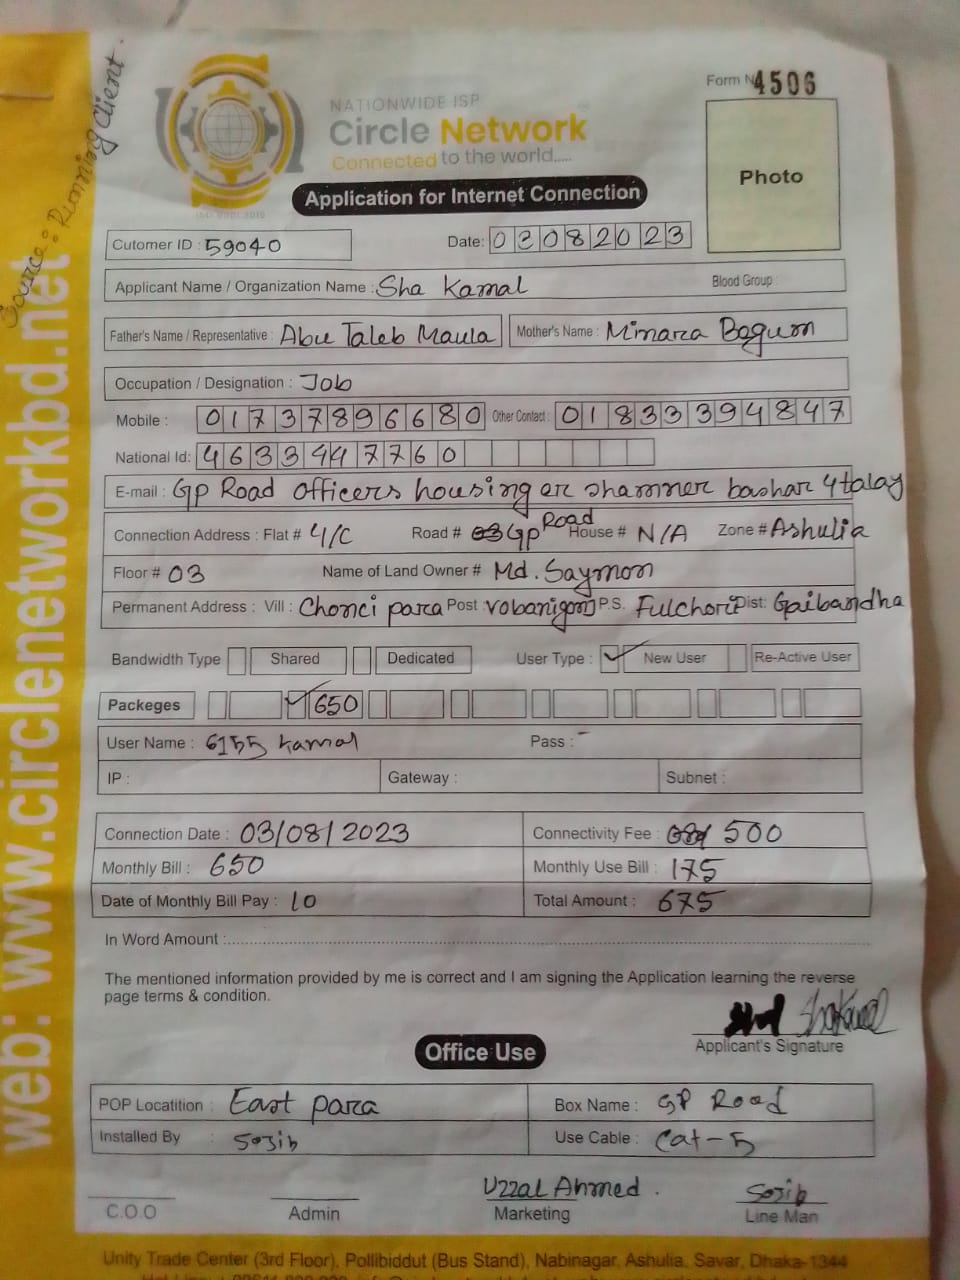 Form N 4506
NATIONWIDE ISP
Circle Network
Connected to the world.....
Photo
Application for Internet Connection
Source: Running Client.
web: www.circlenetworkbd.net
Cutomer ID : 59040
Date: 03082023
Applicant Name / Organization Name : Sha Kamal Blood Group :
Father's Name / Representative : Abu Taleb Maula Mother's Name : Minara Begum
Occupation / Designation : Job
Mobile : 01737896680 Other Contact : 01833394847
National Id: 4633447760
E-mail : GP Road officers housing er shamner bashar 4talay
Connection Address : Flat # 4/C Road # GP Road House # N/A Zone # Ashulia
Floor # 03 Name of Land Owner # Md. Saymon
Permanent Address : Vill : Chonci para Post vobanigonj P.S. Fulchori Dist: Gaibandha
Bandwidth Type Shared Dedicated User Type : ✓ New User Re-Active User
Packeges ✓ 650
User Name : 6155 kamal Pass : -
IP : Gateway : Subnet :
Connection Date : 03/08/2023 Connectivity Fee : 500
Monthly Bill : 650 Monthly Use Bill : 175
Date of Monthly Bill Pay : 10 Total Amount : 675
In Word Amount :
The mentioned information provided by me is correct and I am signing the Application learning the reverse
page terms & condition.
Shakamal
Applicant's Signature
Office Use
POP Locatition : East para Box Name : GP Road
Installed By : Sojib Use Cable : Cat-5
Uzzal Ahmed . Sojib
C.O.O Admin Marketing Line Man
Unity Trade Center (3rd Floor), Pollibiddut (Bus Stand), Nabinagar, Ashulia, Savar, Dhaka-1344